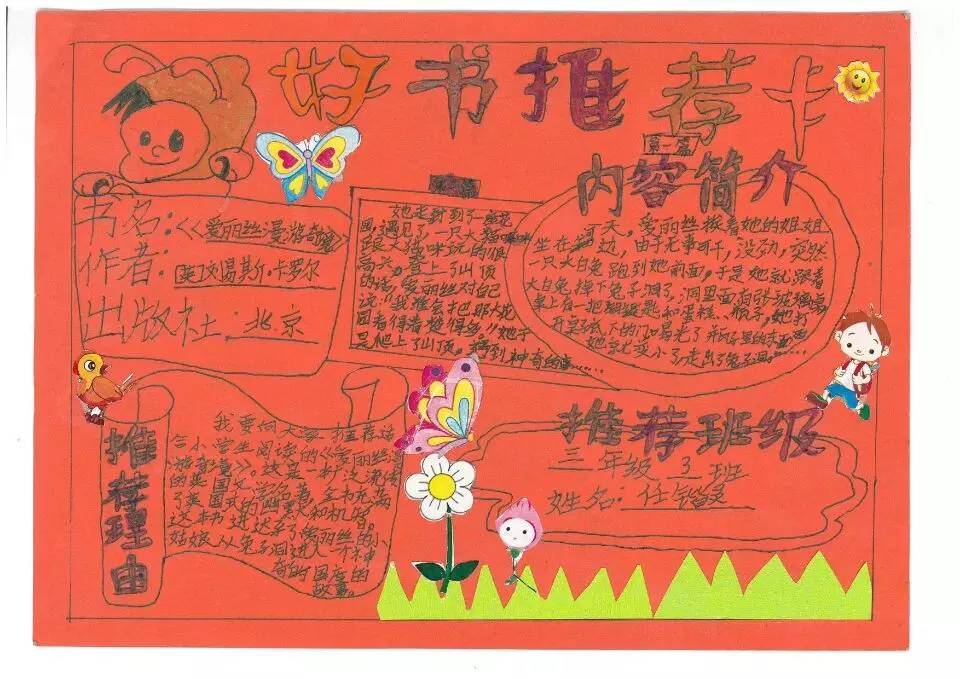 好书推荐卡
书名:《爱丽丝漫游奇境》
作者:英刘易斯·卡罗尔
出版社:北京
第一篇
内容简介
一天,爱丽丝挨着她的姐姐
坐在河边,由于无事可干,没劲,突然
一只大白兔跑到她前面,于是她就跟着
大白兔掉下兔子洞了,洞里面有张玻璃
桌上有一把
和蛋糕、瓶子,她打
开
瓶子里的东西
她就变小了走出了兔子洞……
她走到了一座花
园,遇见了一只大猫咪
跟大猫咪玩的很
高兴。登上了山顶
的话,爱丽丝对自己
说:“我准会把那大花
园看得
楚得多”她于
是爬上了山顶,看到神奇的事……
推荐理由
我要向大家推荐适
合小学生阅读的《爱丽丝漫
游奇境》。这是一
的英国文学名著,全书充满
了英国式的幽默和机智。
这本书讲述了爱丽丝的小
姑娘从兔子洞进入一个神
奇的国度的
故事。
推荐班级
三年级3班
姓名:任